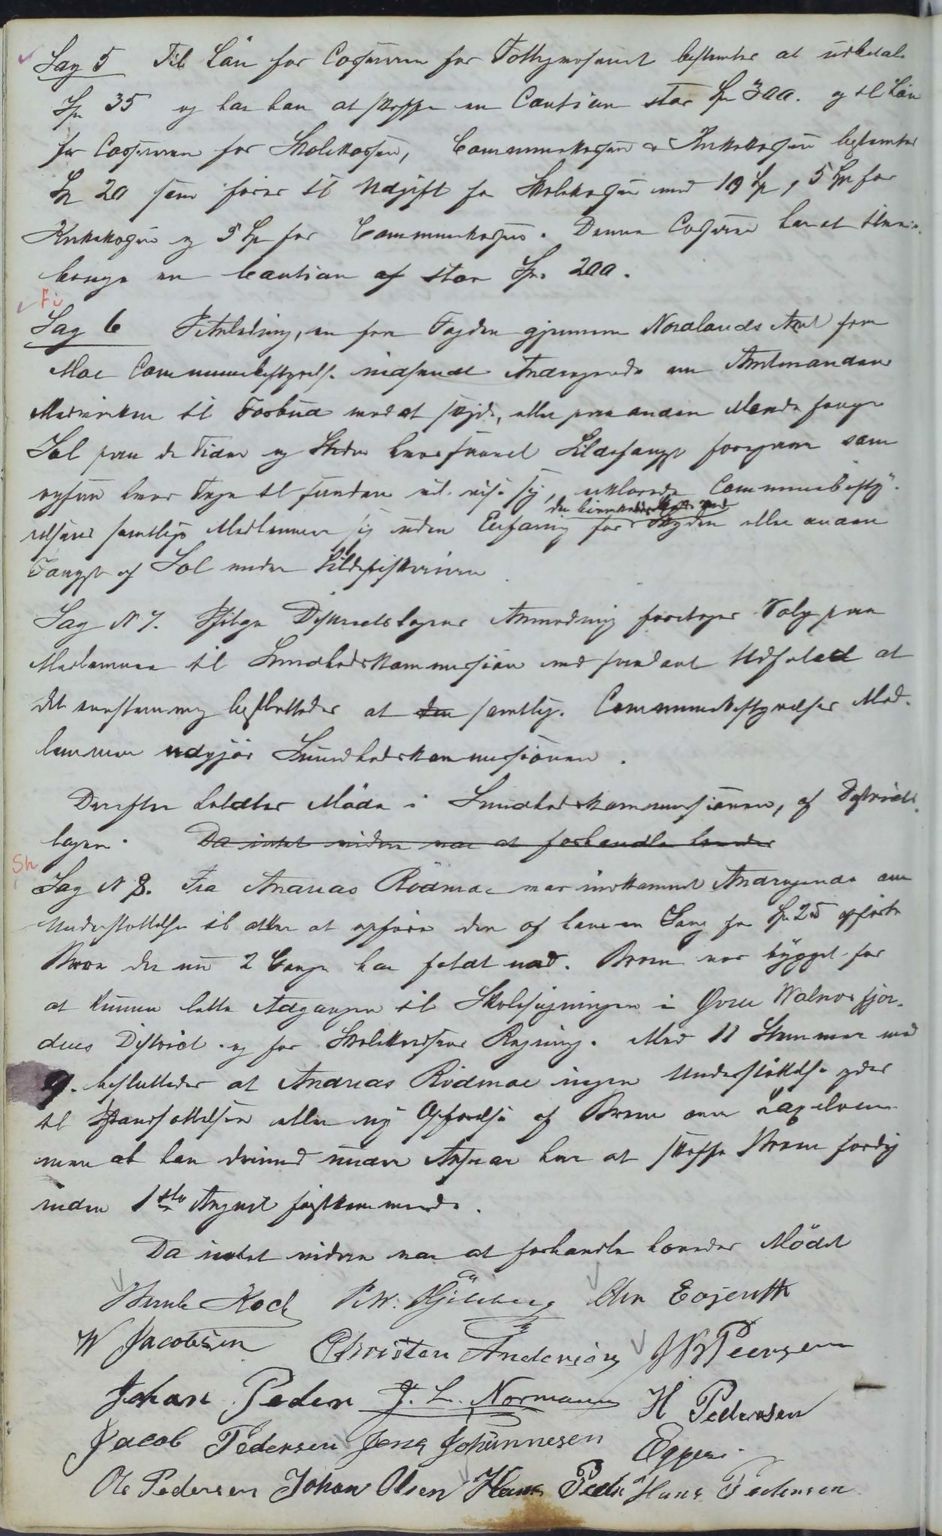 Sag 5 Til Løn for Cassereren for Fattigvæsenet bestemtes at udbetale
Sp 35 og har han at skaffe en Caution stor Sp 300. og til Løn
for Cassereren for Skolekassen, Communekassen & Kirkekassen bestemtes
Sp 20 som føres til Udgift for Skolekassen med 10 Sp, 5 Sp for
Kirkekassen og 5 Sp for Communekassen. Denne Casserer har at
en Caution af stor Sp. 200.
Sag 6 I Anledning, en fra Fogden gjennem Nordlands Amt fra
Moe Communebestyrelse indsendt Andragende om Amtmandens
Medvirken til Forbud mod at skyde, eller paa anden Maade fange
Sæl paa de Tider og Steder hvor Sildefangst foregaar samt
ogsaa hvor Tegn til saadan vil vise sig, erklærede Communebesty-
relsens samtlige Medlemmer sig uden Erfaring for Skyden eller anden
Fangst af Sæl under Sildefiskerierne
Sag N 7. Ifølge Districtslægens Anmodning foretoges Valg paa
Medlemmer til Sundhedskommission med saadant Udfald at
det eenstemmig besluttedes at den samtlige Communebestyrelses Med-
lemmer udgjør Sundhedskommissionen.
Derefter holdtes Møde i Sundhedskommissionen, af Districts-
lægen. Da intet videre var at forhandle hævedes
Sag N 8. Fra Andreas Rödmoe var indkommet Andragende om
Understøttelse til atter at opføre den af ham en Gang for Sp 25 opførte
Broen der nu 2 Gange har faldt ned. Broen var bygget for
at kunne lette Adgangen til Skolesøgningen i Øvre Walnesfjor-
dens District og for Skolelærerens Reisning. Med 11 Stemmer mod
9. besluttedes at Andreas Rödmoe ingen Understøttelse ydes
til Istandsættelsen eller ny Opførelse af Broen over
men at han derimod under Ansvar har at skaffe Broen færdig
inden 1ste August førstkommende.
Da intet videre var at forhandle hævedes Mödet
Koch P. W. Ole Eojenth
W Jacobsen Christen Andersen J N Peersen
Johan Peder J. L. Normann H Pedersen
Jacob Pedersen Jens Johannesen Eggen
Ole Pedersen Johan Olsen Hans Peder Hans Pedersen